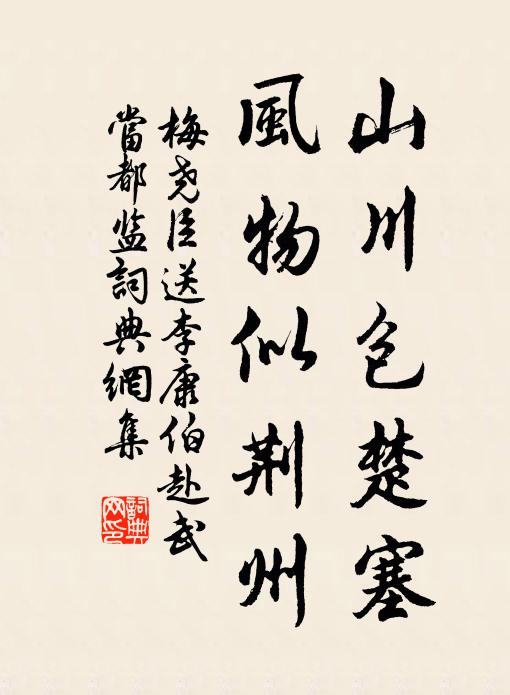 山川包楚塞
風物似荆州
梅堯臣送李康伯赴武
當都监詞典網集
詞典
网印